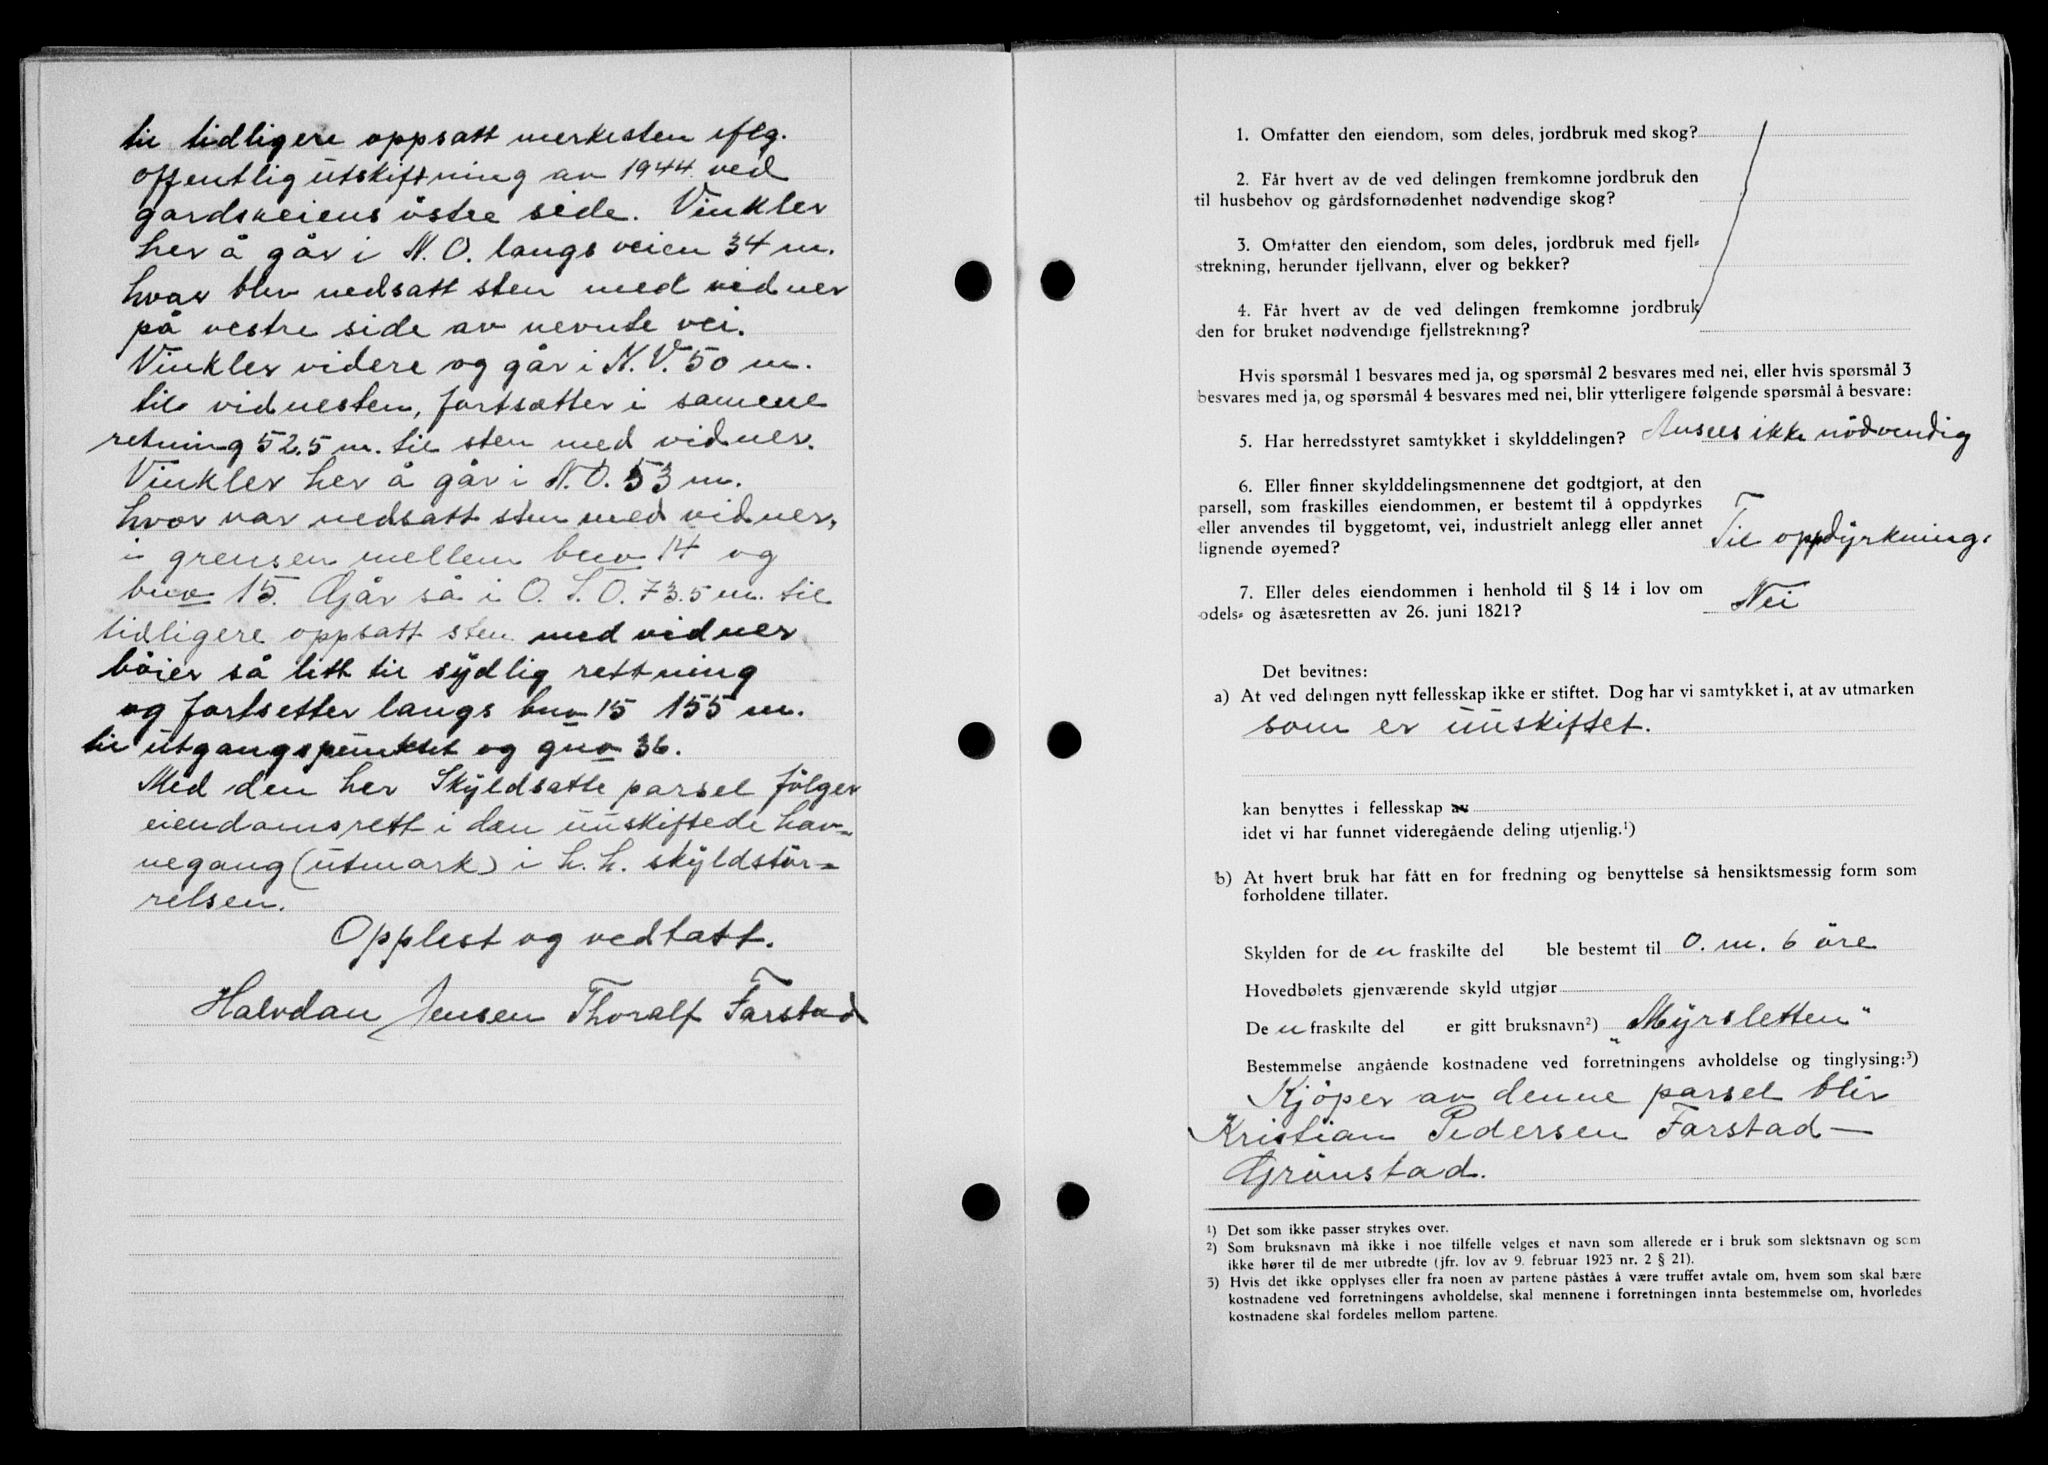 til tidligere oppsatt merkesten iflg.
offentlig utskiftning av 1944 ved
gardsveiens østre side. Vinkler
her å går i N.O. langs veien 34 m.
hvor blev nedsatt sten med vidner
på vestre side av nevnte vei.
Vinkler videre og går i N.V. 50 m.
til vidnesten, fortsætter i samme
retning 52.5 m. til sten med vidner.
Vinkler her å går i N.O. 53 m.
hvor var nedsatt sten med vidner,
i grensen mellem bno 14 og
bno 15. Går så i O.S.O. 73.5 m. til
tidligere oppsatt sten med vidner
böier så litt til sydlig rettning
og fortsetter langs bno 15 155 m.
til utgangspunktet og gno 36.
Med den her Skyldsatte parsel følger
eiendomsrett i den uuskiftede hav-
negang (utmark) i h.h. skyldstör=
relsen.
Opplest og vedtatt.
Halvdan Jensen Thoralf Farstad
1. Omfatter den eiendom, som deles, jordbruk med skog?
2. Får hvert av de ved delingen fremkomne jordbruk den
til husbehov og gårdsfornødenhet nødvendige skog?
3. Omfatter den eiendom, som deles, jordbruk med fjell=
strekning, herunder fjellvann, elver og bekker?
4. Får hvert av de ved delingen fremkomne jordbruk
den for bruket nødvendige fjellstrekning?
Hvis spørsmål 1 besvares med ja, og spørsmål 2 besvares med nei, eller hvis spørsmål 3
besvares med ja, og spørsmål 4 besvares med nei, blir ytterligere følgende spørsmål å besvare:
5. Har herredsstyret samtykket i skylddelingen? Ansees ikke nödvendig
6. Eller finner skylddelingsmennene det godtgjort, at den
parsell, som fraskilles eiendommen, er bestemt til å oppdyrkes
eller anvendes til byggetomt, vei, industrielt anlegg eller annet
lignende øyemed? Til oppdyrkning.
7. Eller deles eiendommen i henhold til § 14 i lov om
odels= og åsætesretten av 26. juni 1821? Nei
Det bevitnes:
a) At ved delingen nytt fellesskap ikke er stiftet. Dog har vi samtykket i, at av utmarken
som er uuskiftet.
kan benyttes i fellesskap av
idet vi har funnet videregående deling utjenlig.¹)
b) At hvert bruk har fått en for fredning og benyttelse så hensiktsmessig form som
forholdene tillater.
Skylden for de n fraskilte del ble bestemt til 0. m. 6 öre
Hovedbølets gjenværende skyld utgjør
De n fraskilte del er gitt bruksnavn²) "Myrsletten"
Bestemmelse angående kostnadene ved forretningens avholdelse og tinglysing:³)
Kjöper av denne parsel blir
Kristian Pedersen Farstad—
Grönstad.
¹) Det som ikke passer strykes over.
²) Som bruksnavn må ikke i noe tilfelle velges et navn som allerede er i bruk som slektsnavn og som
ikke hører til de mer utbredte (jfr. lov av 9. februar 1923 nr. 2 § 21).
3) Hvis det ikke opplyses eller fra noen av partene påståes å være truffet avtale om, hvem som skal bære
kostnadene ved forretningens avholdelse, skal mennene i forretningen innta bestemmelse om, hvorledes
kostnadene skal fordeles mellom partene.